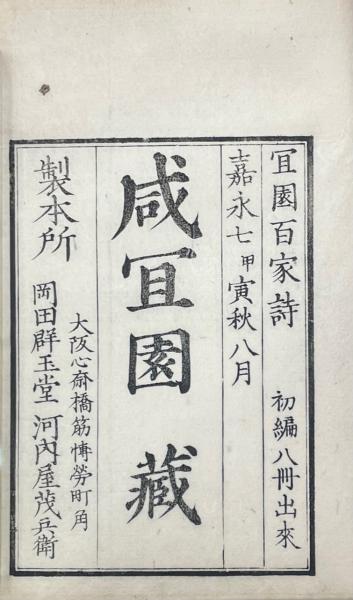 宜園百家詩 初編八冊出來
嘉永七甲寅秋八月
咸宜園藏
製本所
大阪心斎橋筋博労町角
岡田群玉堂 河内屋茂兵衛